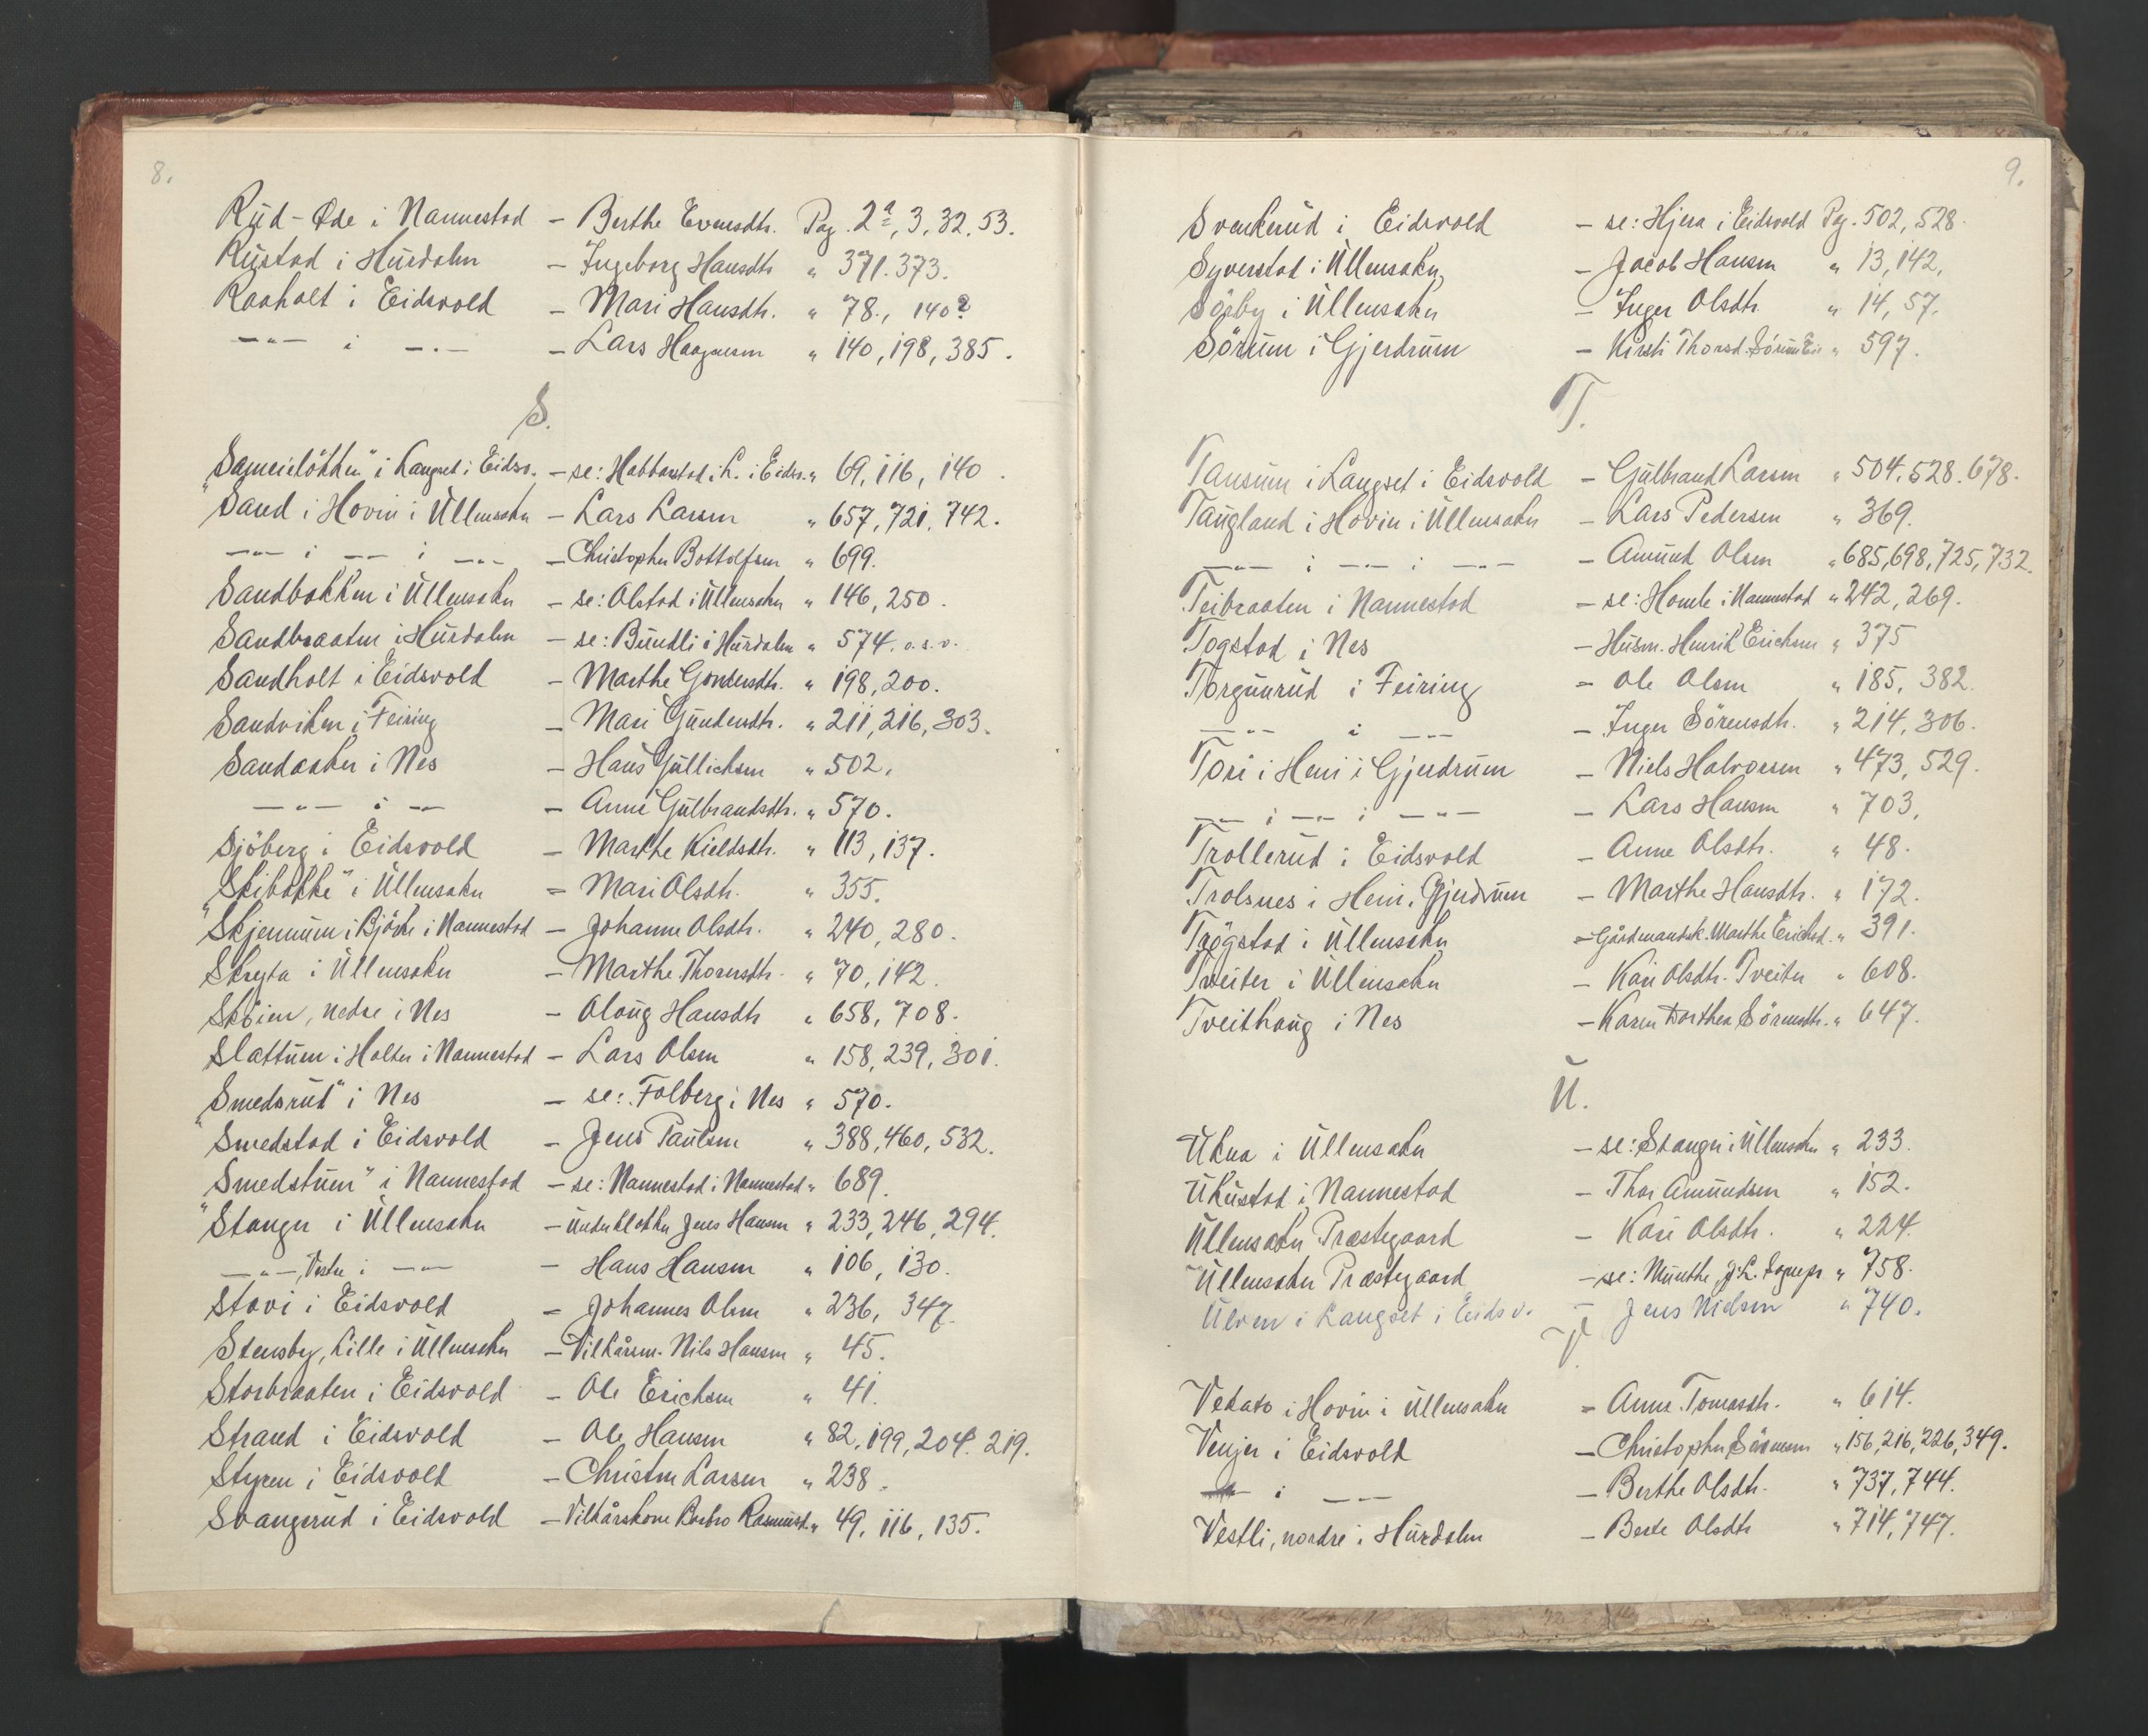 8.
Rud-Øde i Nannestad - Berthe Evensdtr. Pag. 2ª, 3, 32, 53.
Rustad i Hurdalen - Ingeborg Hansdtr „ 371. 373.
Raaholt i Eidsvold - Mari Hansdtr. „ 78., 140?
—„— i —„— - Lars Haagensen „ 140, 198, 385.
S.
i Langset i Eidsv. - se: Habberstad i L. i Eidsv. „ 69, 116, 140
Sand i Hovin i Ullensaker - Lars Larsen „ 657, 721, 742.
—„— i —„— i —„— - Christopher Bottolfsen „ 699.
Sandbakken i Ullensaker - se: Olstad i Ullensaker „ 146, 250.
Sandbraaten i Hurdalen - se: Bundli i Hurdalen „ 574. o.s.v.
Sandholt i Eidsvold - Marthe Gundersdtr. „ 198, 200.
Sandviken i Feiring - Mari Gundersdtr. „ 211, 216, 303.
Sandaaker i Nes - Hans Gullichsen „ 502.
—„— i —„— - Anne Gulbrandsdtr. „ 570.
Sjöberg i Eidsvold - Marthe Kieldsdtr. „ 113, 137.
"Skibakke" i Ullensaker - Mari Olsdtr. „ 355.
Skjennum i Bjerke i Nannestad - Johanne Olsdtr. „ 240, 280.
Skryta i Ullensaker - Marthe Thorersdtr. „ 70, 142.
Sköien, nedre i Nes - Olaug Hansdtr „ 658, 708.
Slattum i Holter i Nannestad - Lars Olsen „ 158, 239, 301.
"Smedsrud" i Nes - se: Folberg i Nes „ 570.
Smedstad i Eidsvold - Jens Paulsen „ 388, 460, 532.
"Smedstuen" i Nannestad - se: Nannestad i Nannestad „ 689.
Stanger i Ullensaker - Underklokker Jens Hansen „ 233, 246, 294.
—„—, Vestre i —„— - Hans Hansen „ 106, 130.
Stavi i Eidsvold - Johannes Olsen „ 236, 347.
Stensby, Lille i Ullensaker - Vilkårsm. Nils Hansen „ 45.
Storbraaten i Eidsvold - Ole Erichsen „ 41.
Strand i Eidsvold - Ole Hansen „ 82, 199, 204. 219.
Styren i Eidsvold - Christen Larsen „ 238.
Svangerud i Eidsvold - Vilkårskone Barbro Rasmusd. „ 49, 116, 135.
9.
Svenkerud i Eidsvold - se: Hjera i Eidsvold Pag. 502, 528.
Syverstad i Ullensaker - Jacob Hansen „ 13, 142.
Sörby i Ullensaker - Inger Olsdtr. „ 14, 57.
Sörum i Gjerdrum - Kirsti Thorsd. Sörum Eie „ 597.
T.
Tansum i Langset i Eidsvold - Gulbrand Larsen „ 504. 528. 678.
Taugland i Hovin i Ullensaker - Lars Pedersen „ 369.
—„— i —„— i —„— - Amund Olsen „ 685, 698, 725, 732.
Teibraaten i Nannestad - se: Homle i Nannestad „ 242, 269.
Togstad i Nes - Husm. Henrik Erichsen „ 375
Torgunrud i Feiring - Ole Olsen „ 185, 382.
—„— i —„— - Inger Sörensdtr. „ 214, 306.
Tori i Heni i Gjerdrum - Niels Halvorsen „ 473, 529.
—„— i —„— i —„— - Lars Hansen „ 703.
Trollerud i Eidsvold - Anne Olsdtr. „ 48.
Trolsnes i Heni i Gjerdrum - Marthe Hansdtr. „ 172.
Trögstad i Ullensaker - Gårdmandsk. Marthe Erichsd. „ 391.
Tveiter i Ullensaker - Kari Olsdtr. Tveiter „ 608.
Tveithaug i Nes - Karen Dorthea Sörensdtr. „ 647.
U.
Ukna i Ullensaker - se: Stanger i Ullensaker „ 233.
Ukustad i Nannestad - Thor Amundsen „ 152.
Ullensaker Præstegaard - Kari Olsdtr. „ 224.
Ullensaker Præstegaard - se: Munthe, J. L. Sognepr. „ 758.
Ulven i Langset i Eidsv. - Jens Nielsen „ 740.
V.
i Hovin i Ullensaker - Anne Tomasdtr. „ 614.
Venjer i Eidsvold - Christopher Sörensen „ 156, 216, 226, 349.
—„— i —„— - Berthe Olsdtr. „ 737, 744.
Vestli, nordre i Hurdalen - Berte Olsdtr „ 714, 747.